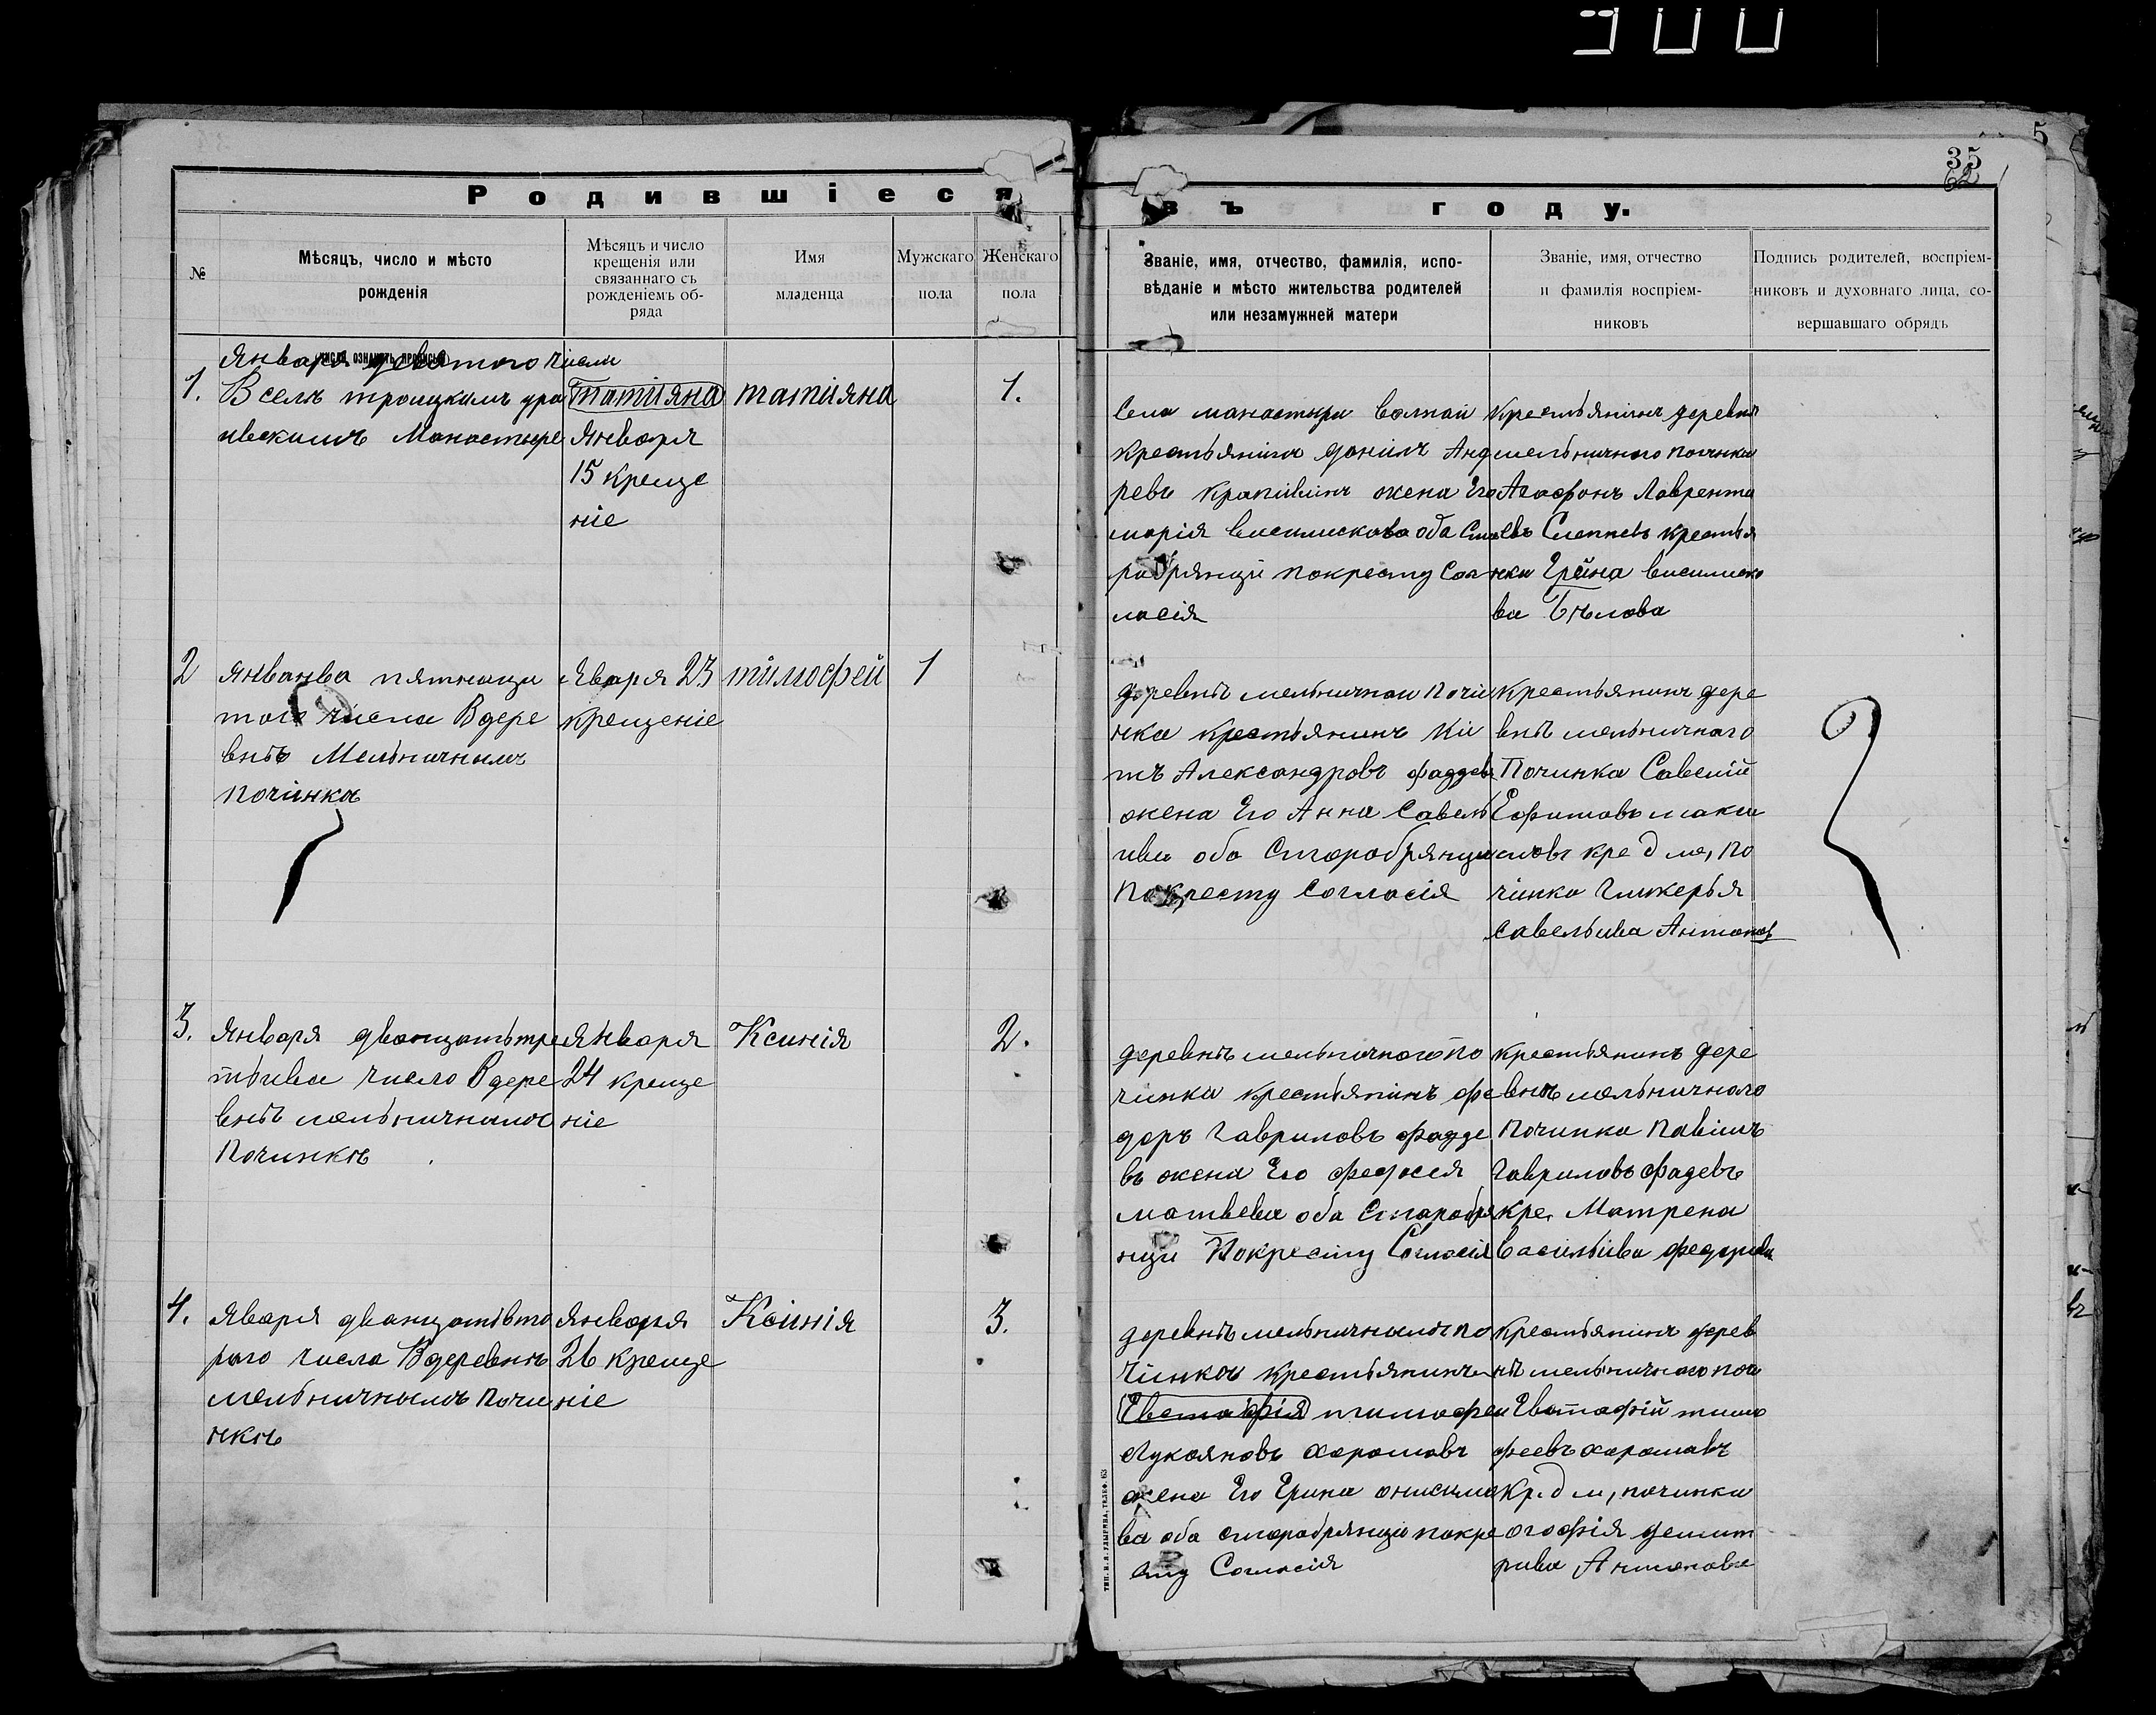 900
5
35
62
Родившіеся
въ году.
№
Мѣсяцъ, число и мѣсто
рожденія
Мѣсяцъ и число
крещенія или
связаннаго съ
рожденіемъ об-
ряда
Имя
младенца
Мужскаго
пола
Женскаго
пола
Званіе, имя, отчество, фамилія, испо-
вѣданіе и мѣсто жительства родителей
или незамужней матери
Званіе, имя, отчество
и фамилія воспріем-
никовъ
Подпись родителей, воспріем-
никовъ и духовнаго лица, со-
вершавшаго обрядъ
1.
Января девятого числа
В селѣ троицкимъ
Монастыре
татіяна
Января
15 креще
ніе
татіяна
1.
Села манастыри
крестьянинъ данилъ Анд
ревъ Крапивинъ жена Его
марія василискова оба Ста
робрянци покресту Сог
ласія
крестьянинъ деревня
мельничного починка
Агафонъ Лаврента
евъ Слепневъ крестья
нка Ерина василиско
ва Бѣлова
2
пятнаца
того числа В дере
внѣ Мельничнымъ
починка
Яваря 23
крещеніе
тимофей
1
деревнѣ мельничнаи почи
нка крестьянинъ
тъ Александровъ фаддевъ
жена Его Анна Савель
ива оба Старобрянци
покресту Согласія
крестьянинъ дере
внѣ мельничнаго
Починка Савелій
Ефимовъ макси
мовъ кре д ме, по
чинка Гликерья
савельива Антонов
3.
Января дванцатьтре
тьива число В дере
внѣ мельничнымъ
починкѣ
Января
24 креще
ніе
Ксинія
2.
деревнѣ мельничного по
чинка крестьянинъ фе
доръ гавриловъ фадде
въ жена Его федосея
матвева оба Старобря
нци Покресту Согласія
крестьянинъ дере
внѣ мельничного
починка Павилъ
Гавриловъ фадевъ
кре, Матрена
васильива федорива
4.
Яваря дванцатівто
раго числа В деревнѣ
мельничнымъ почи
нкѣ
Января
26 креще
ніе
Ксинія
3.
деревнѣ мельничнымъ по
чинка крестьянинъ
Евстафія тимофеи
Лукояновъ харошавъ
жена Его Ерина онисимо
ва оба старобрянци покре
сту Согласія
крестьянинъ дерев
нѣ мельничного почи
Евстафій тимо
феевъ харошавъ
Кр. д м, починка
огофія демит
рива Антонова